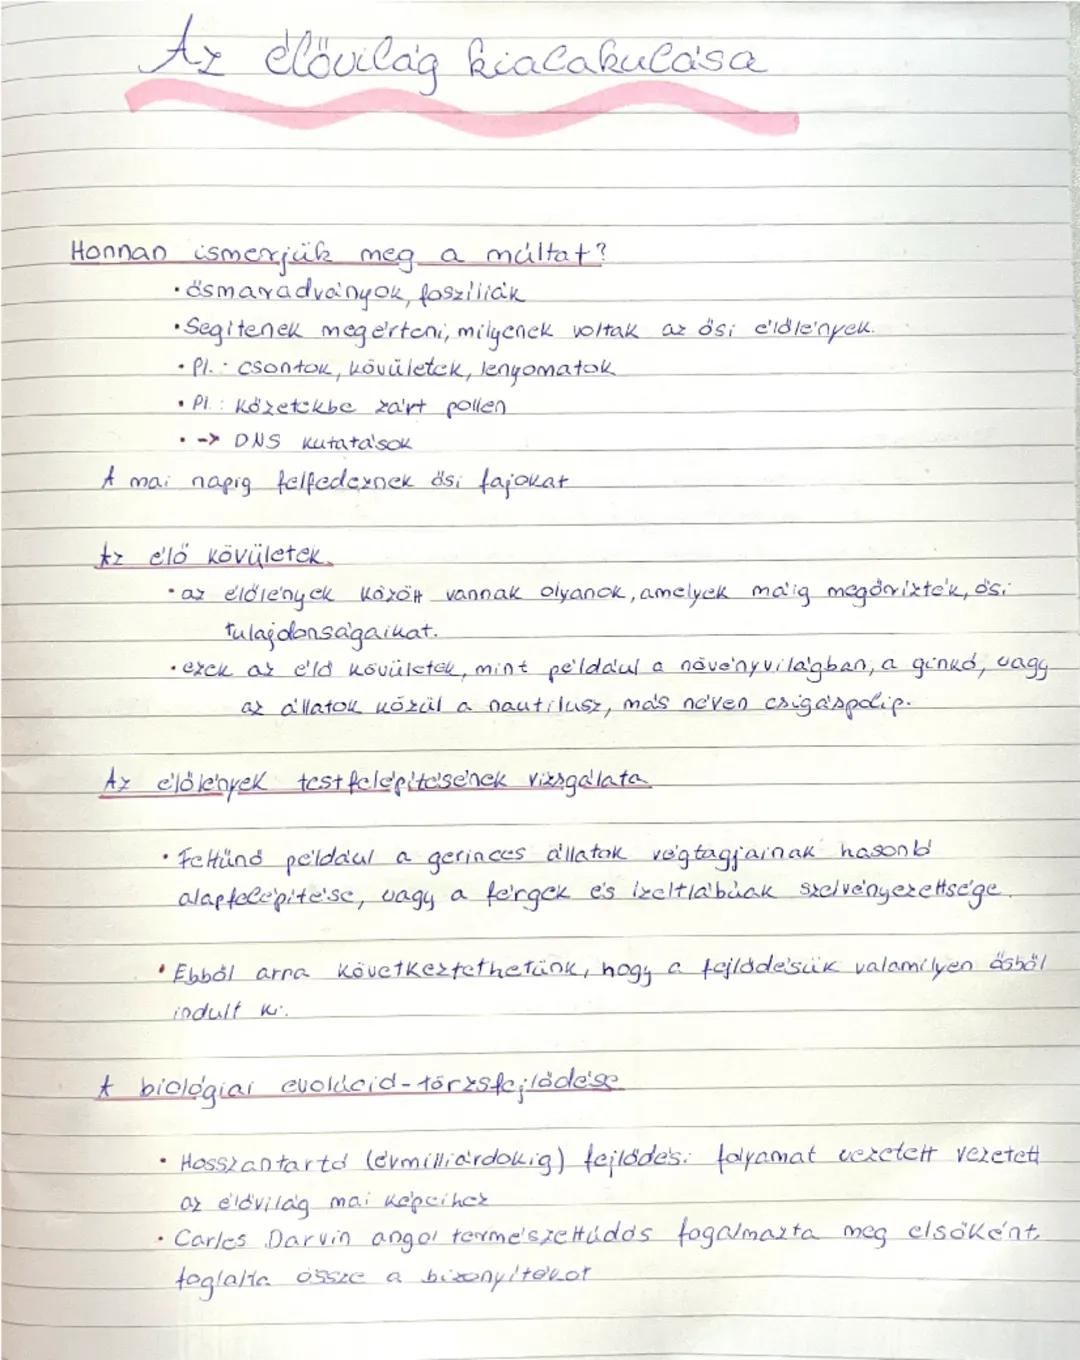 Az élővilág kialakulása
Honnan ismerjük meg a múltat?
• ősmaradványok, fosziliák
• Segitenek megérteni, milyenek voltak az ősi élőlények.
• Pl.: csontok, kövületek, lenyomatok
• Pl.: Kőzetekbe zárt pollen
• -> DNS kutatások
A mai napig felfedeznek ősi fajokat
Az élő kövületek
• az élőlények között vannak olyanok, amelyek máig megőrizték, ősi
tulajdonságaikat.
• ezek az élő kövületek, mint például a növényvilágban, a ginkó, vagy
az állatok közül a nautilusz, más néven csigáspolip.
Az élőlények testfelépítésének vizsgálata
• Feltűnő például a gerinces állatok végtagjainak hasonló
alapfelépítése, vagy a férgek és izeltlábúak szelvényezettsége.
• Ebből arra következtethetünk, hogy a fejlődésük valamilyen ősből
indult ki.
A biológiai evolúció-törzsfejlődése
• Hosszantartó (évmilliárdokig) fejlődési folyamat vezetett vezetett
az élővilág mai képeihez
• Carles Darvin angol természettudós fogalmazta meg elsőként,
foglalta össze a bizonyítékot